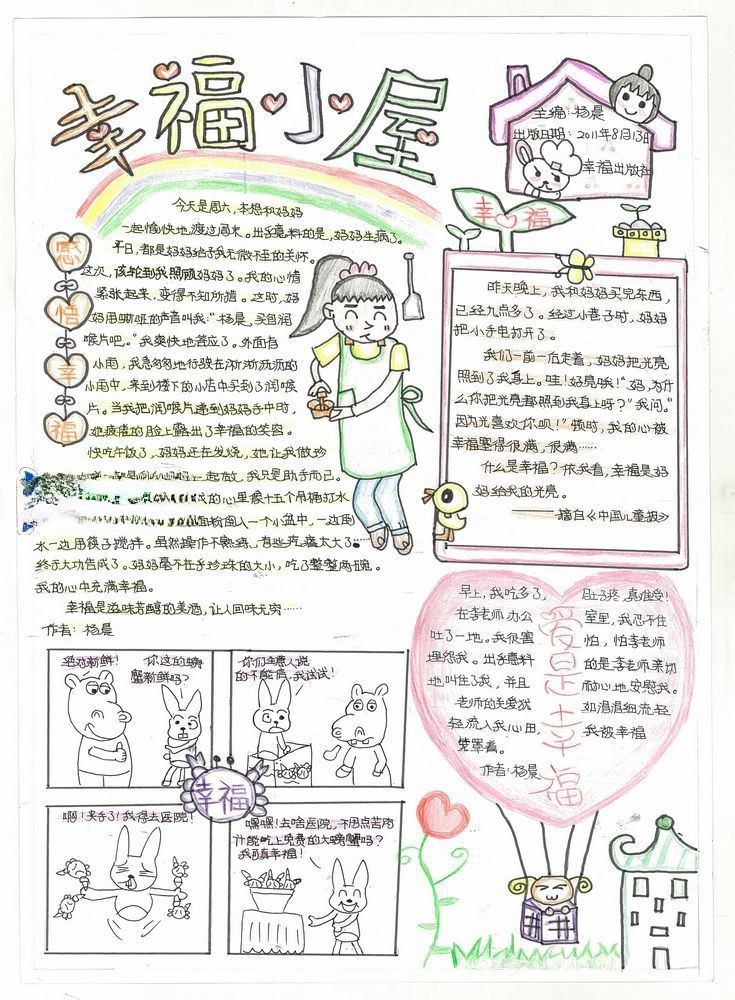 幸福小屋
主编：杨晨
出版日期：2011年8月13日
幸福出版社
感
悟
幸
福
今天是周六，本想和妈妈
一起愉快地渡过周末。出乎意料的是，妈妈生病了。
平日，都是妈妈给予我无微不至的关怀。
这次，该轮到我照顾妈妈了。我的心情
紧张起来，变得不知所措。这时，妈
妈用嘶哑的声音叫我：“杨晨，买包润
喉片吧。”我爽快地答应了。外面有
小雨，我急匆匆地行驶在淅淅沥沥的
小雨中，来到楼下的小店中买到了润喉
片。当我把润喉片递到妈妈手中时，
她疲倦的脸上露出了幸福的笑容。
快吃午饭了，妈妈还在发烧，她让我做珍
一起放，我只是助手而已。
的心里像十五个吊桶打水
面粉倒入一个小盆中，一边倒
水一边用筷子搅拌。虽然操作不熟练，有些疙瘩太大了……
终于大功告成了。妈妈毫不在乎珍珠的大小，吃了整整两碗。
我的心中充满幸福。
幸福是滋味芳醇的美酒，让人回味无穷……
作者：杨晨
幸福
昨天晚上，我和妈妈买完东西，
已经九点多了。经过小巷子时，妈妈
把小手电打开了。
我们一前一后走着，妈妈把光亮
照到了我身上。哇！好亮哦！“妈，为什
么你把光亮都照到我身上呀？”我问。“
因为光喜欢你呗！”顿时，我的心被
幸福塞得很满，很满……
什么是幸福？依我看，幸福是妈
妈给我的光亮。
——摘自《中国儿童报》
爱是幸福
早上，我吃多了，肚子疼，真难受！
在李老师办公室里，我忍不住
吐了一地。我很害怕，怕李老师
埋怨我。出乎意料的是李老师亲切
地叫住了我，并且耐心地安慰我。
老师的关爱犹如涓涓细流轻
轻流入我心田，我被幸福
笼罩着。
作者：杨晨
绝对新鲜！
你这的螃
蟹新鲜吗？
你们生意人说
的不能信，我试试！
幸福
啊！夹手了！我得去医院！
嘿嘿！去啥医院，不用点苦肉
计能吃上免费的大螃蟹吗？
我可真幸福！